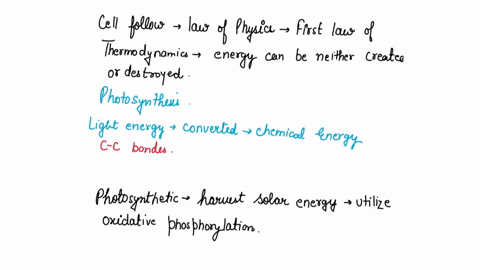 Cell follow → law of Physics → First law of
Thermodynamics → energy can be neither create
or destroyed.
Photosynthesis.
Light energy → converted → chemical Energy
C-C bondes.
Photosynthetic → harvest solar energy → utilize
oxidative phosphorylation.